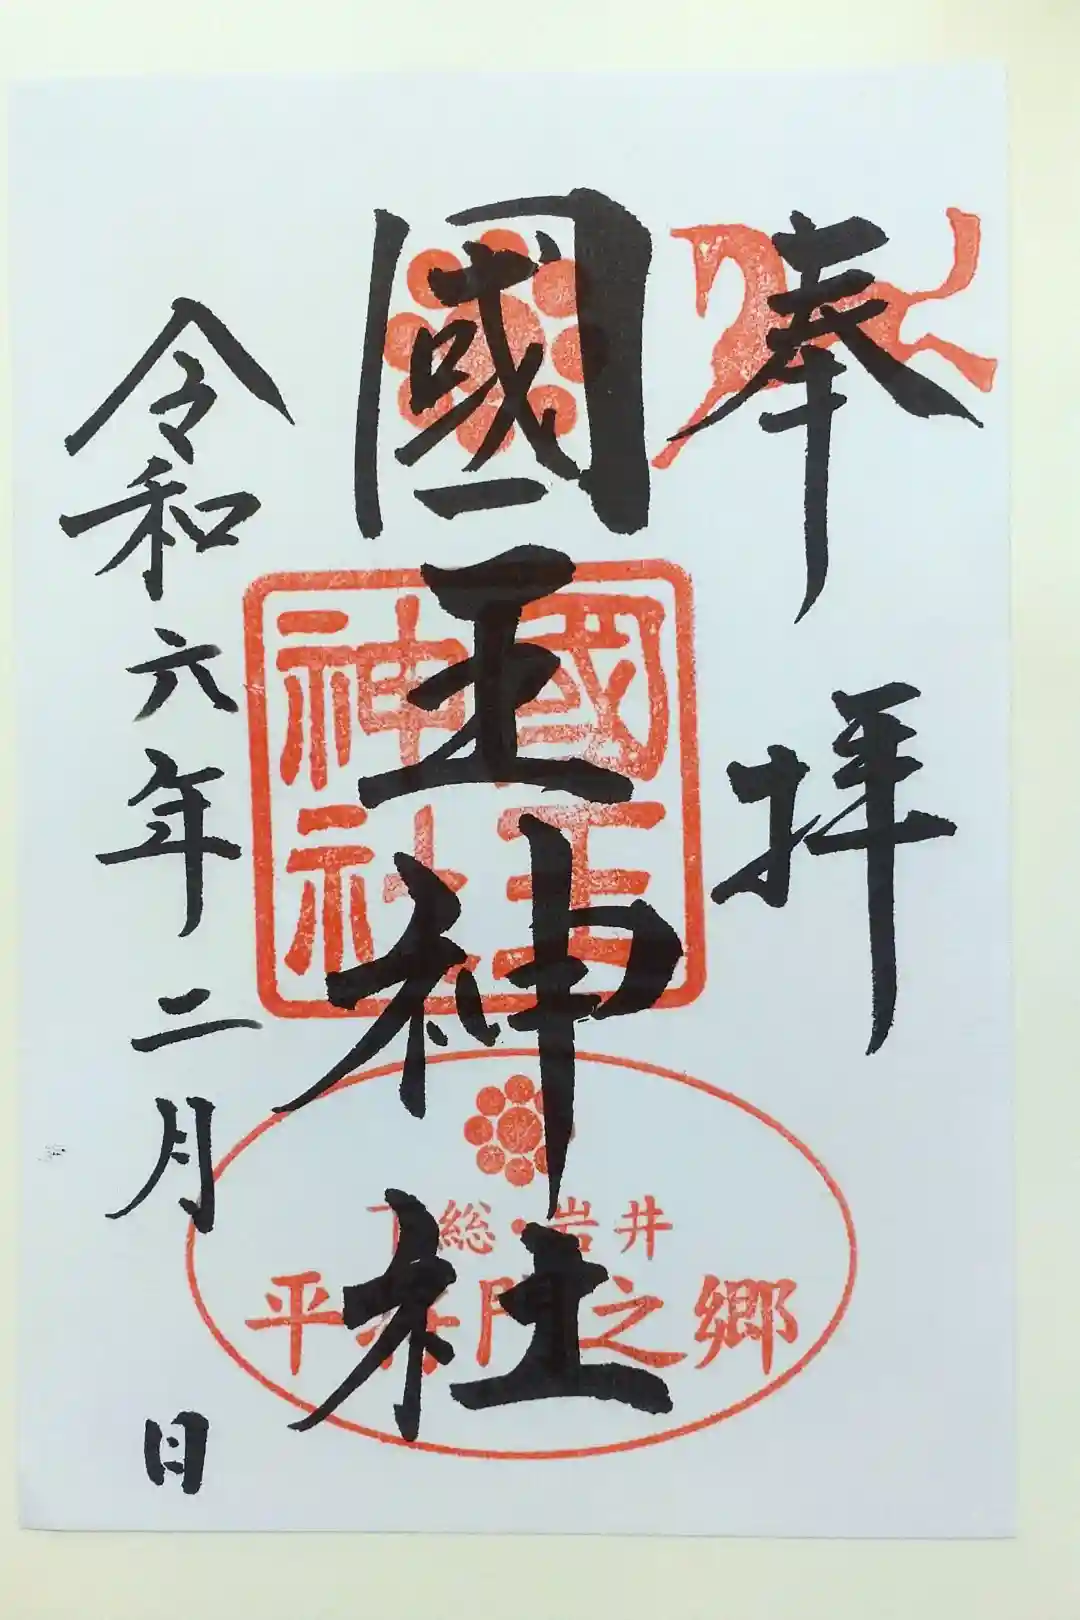 奉拝
國王神社
國王
神社
下総・岩井
平将門之郷
令和六年二月 日